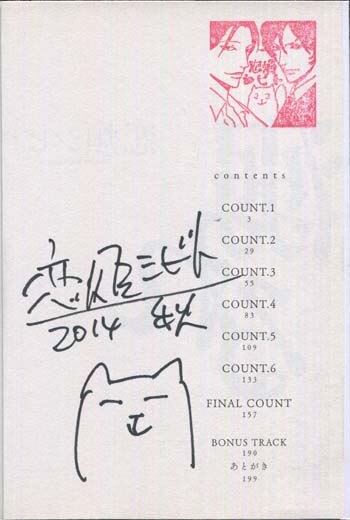 contents
COUNT.1
3
COUNT.2
29
COUNT.3
55
COUNT.4
83
COUNT.5
109
COUNT.6
133
FINAL COUNT
157
BONUS TRACK
190
あとがき
199
恋煩シビト
2014 秋